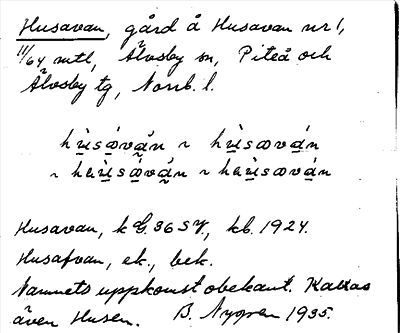 Husavan, gård å Husavan nr 1,
11/64 mtl, Älvsby sn, Piteå och
Älvsby tg, Norrb. l.
Husavan, k G. 36 SV, kb. 1924.
Husafvan, ek., bek.
Namnets uppkomst obekant. Kallas
även Husen. B. Nygren 1935.